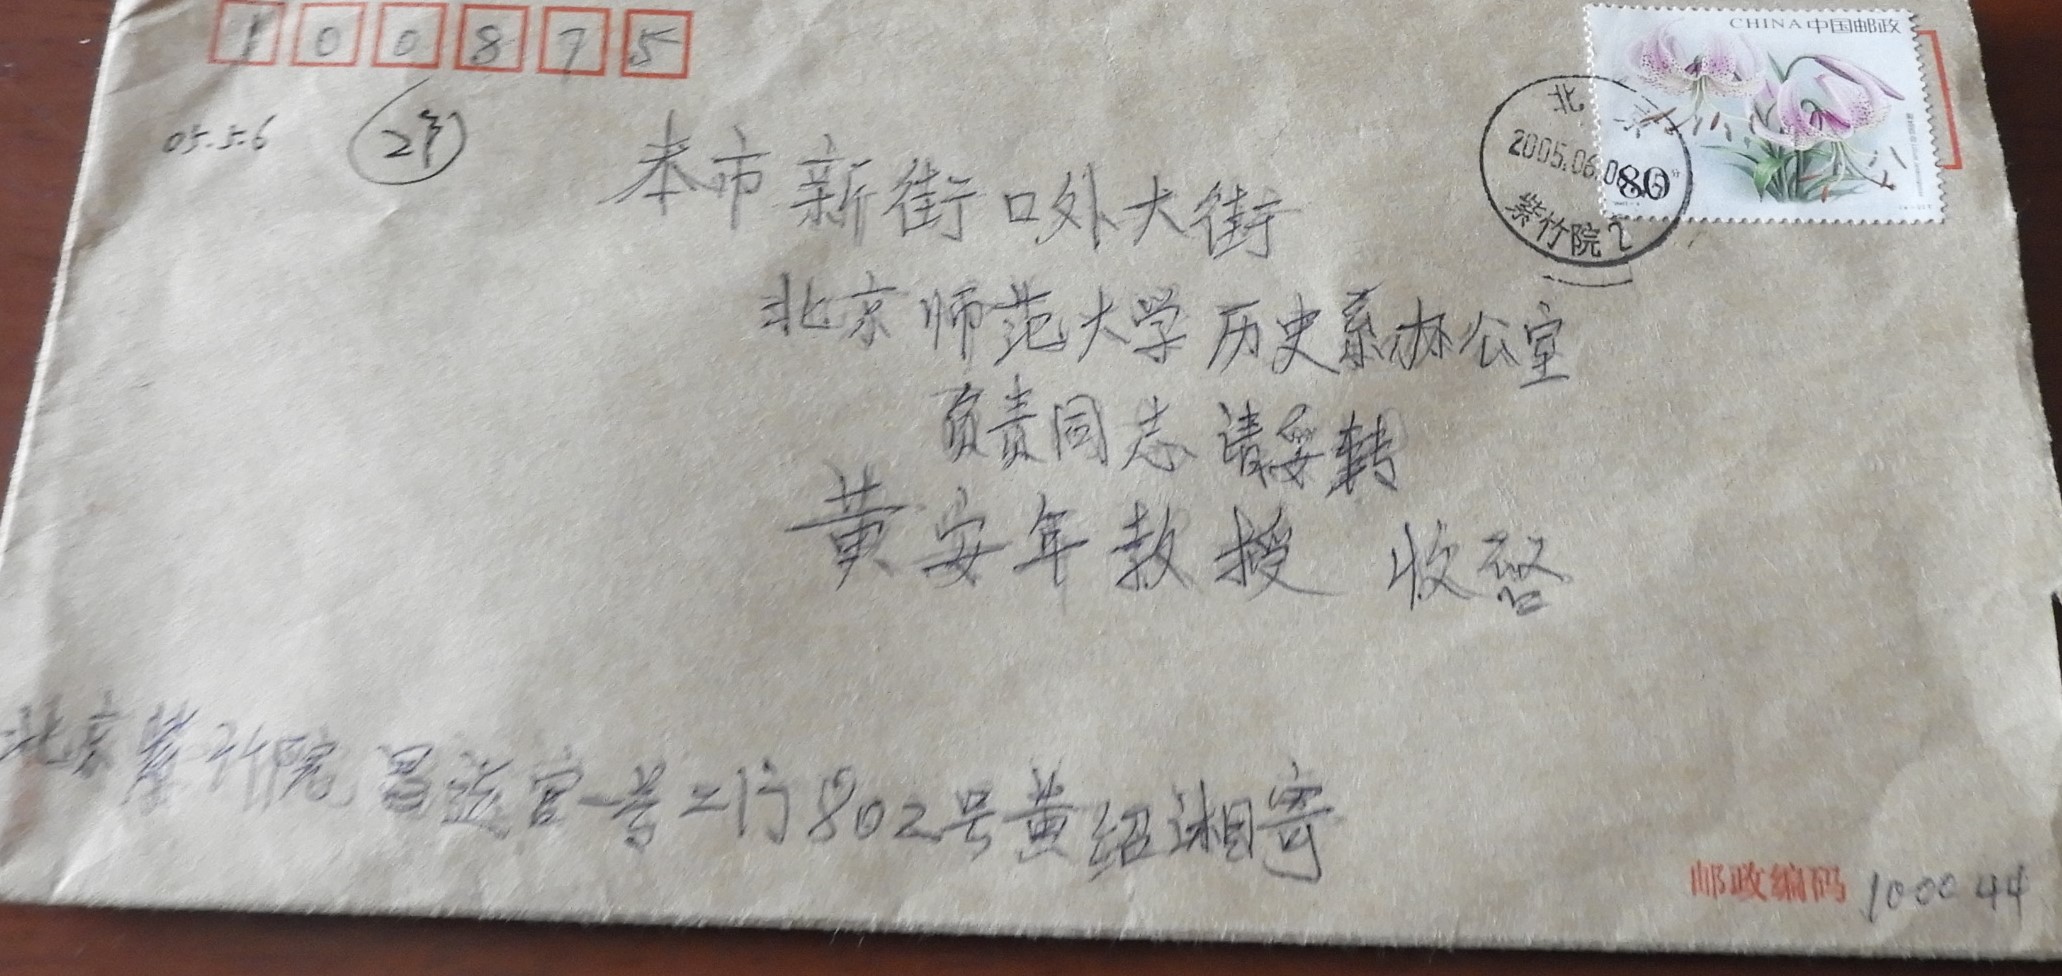 100875
CHINA 中国邮政
05.5.6
北京
2005.06.0
80分
紫竹院
本市新街口外大街
北京师范大学历史系办公室
负责同志请妥转
黄安年教授 收启
北京紫竹院昌运宫一号二门802号黄绍湘寄
邮政编码 100044